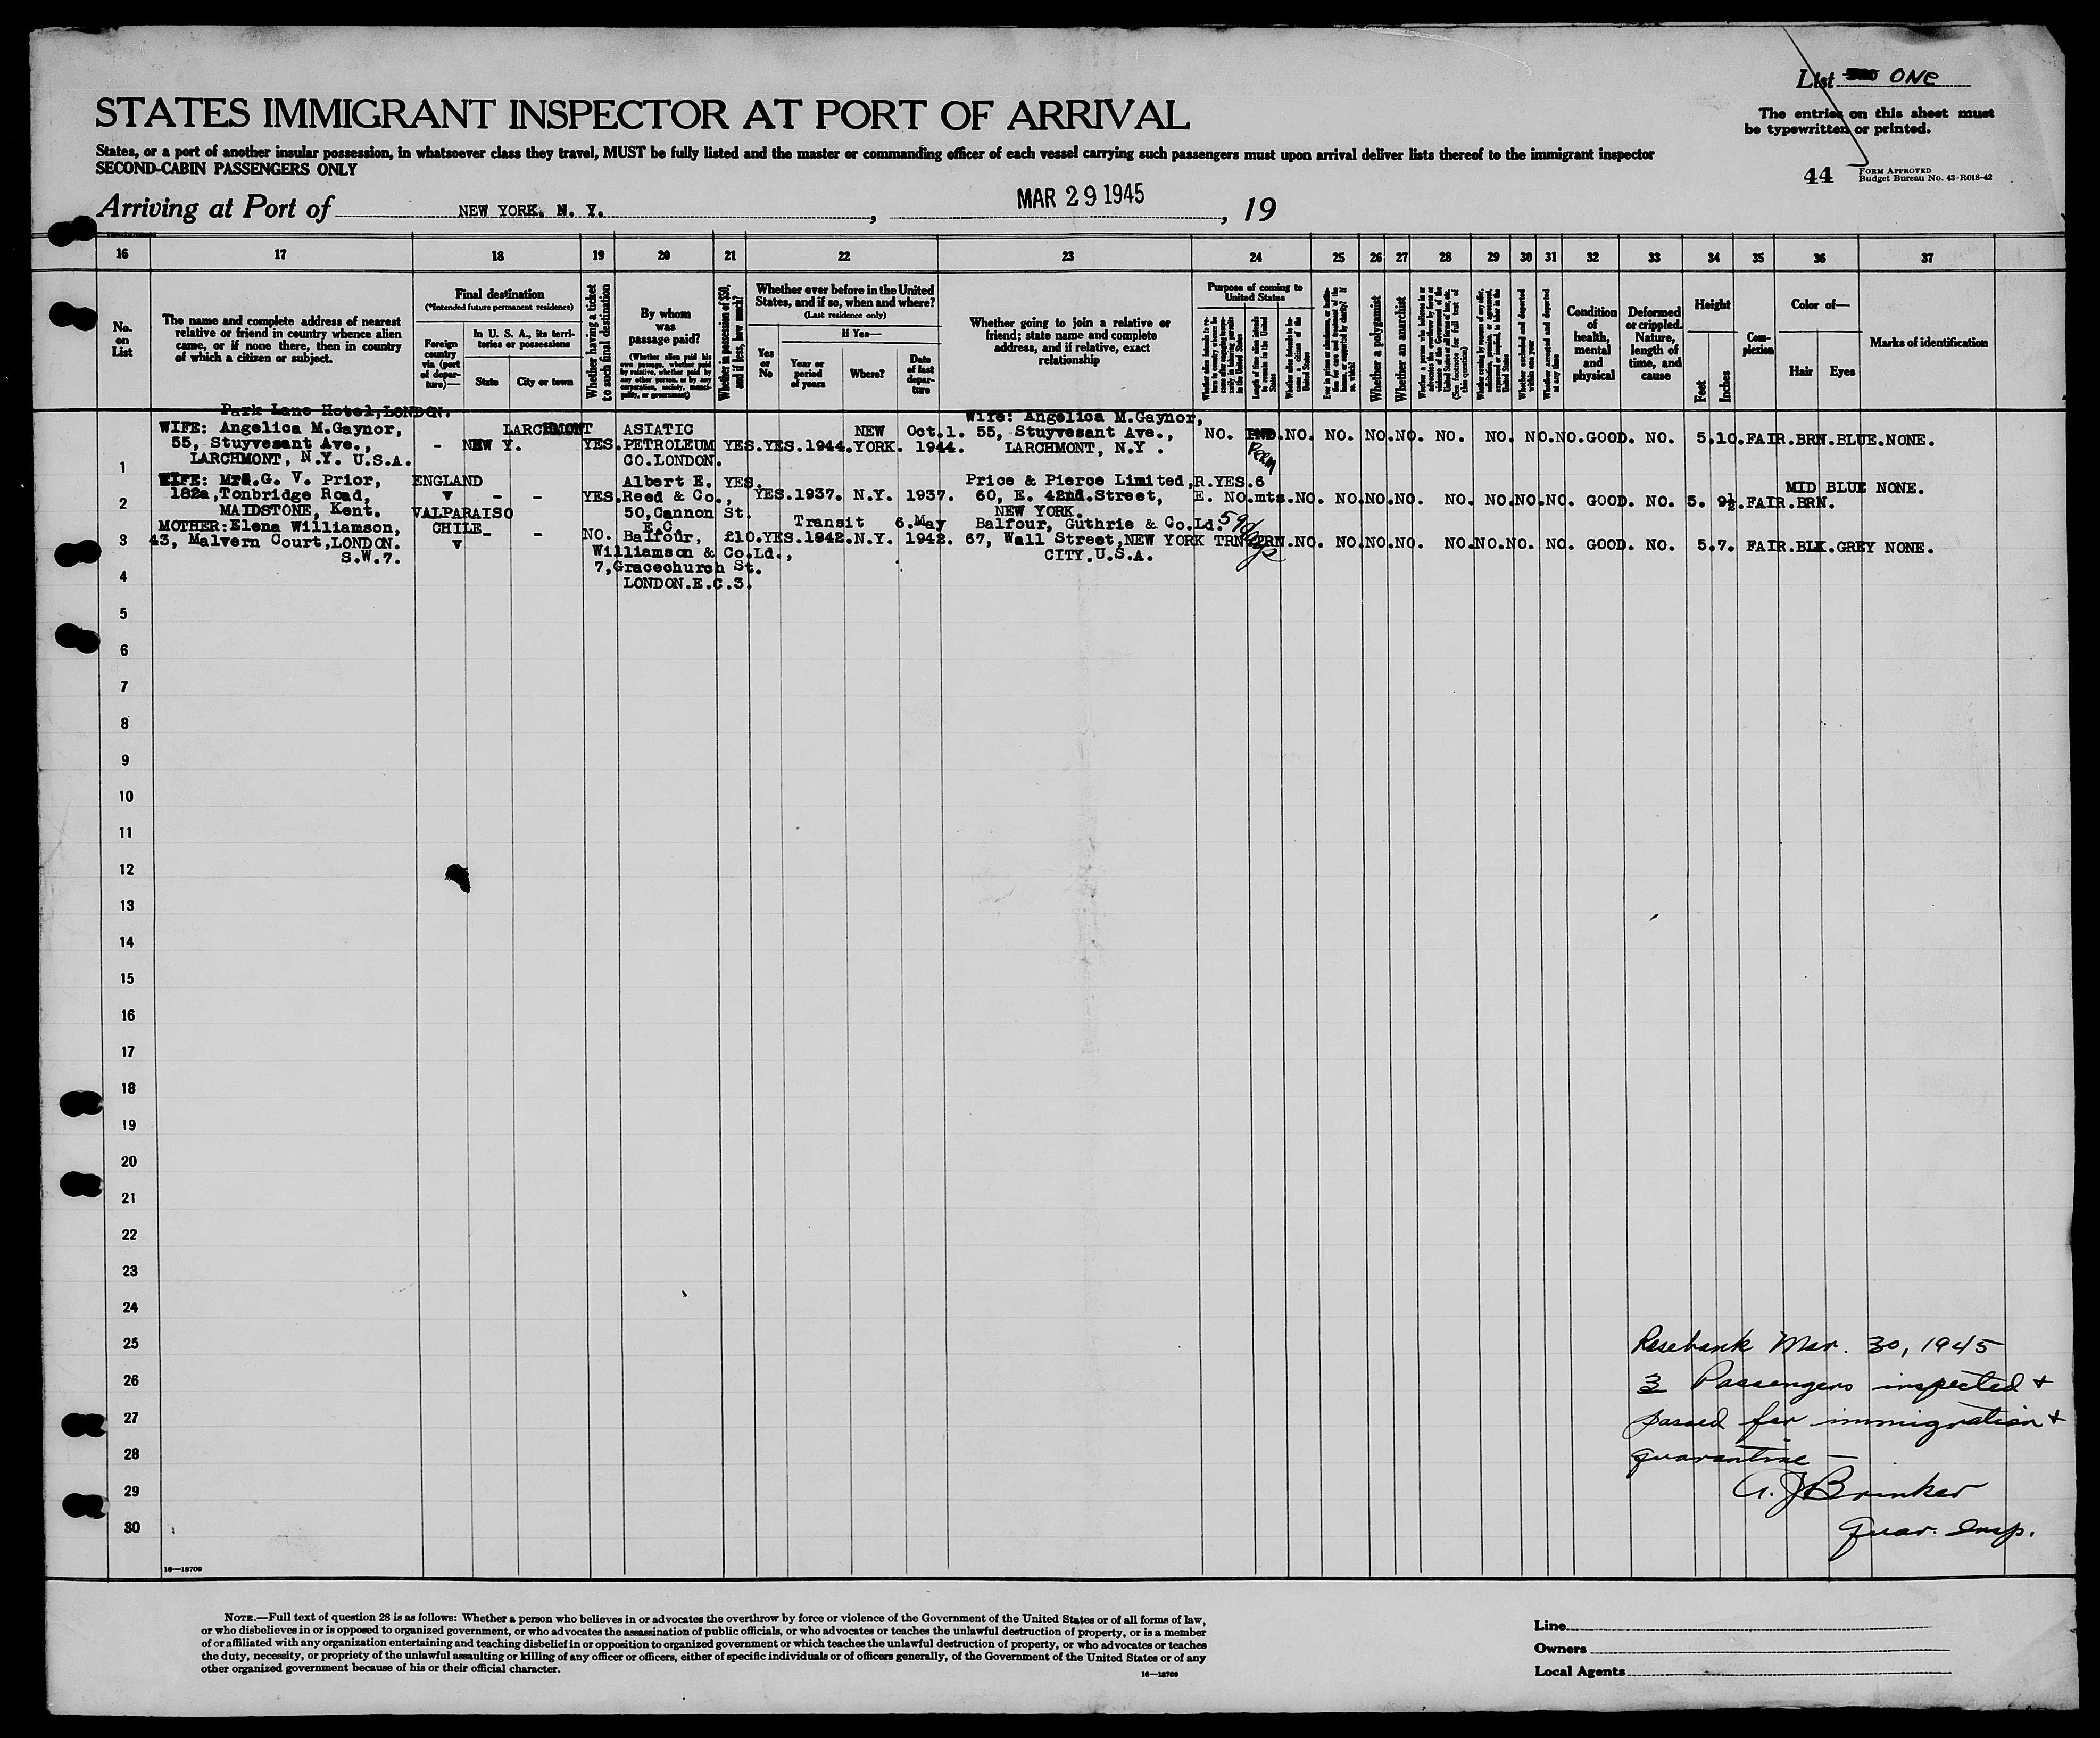 List ONE
The entries on this sheet must
be typewritten or printed.
STATES IMMIGRANT INSPECTOR AT PORT OF ARRIVAL
States, or a port of another insular possession, in whatsoever class they travel, MUST be fully listed and the master or commanding officer of each vessel carrying such passengers must upon arrival deliver lists thereof to the immigrant inspector
SECOND-CABIN PASSENGERS ONLY
44 FORM APPROVED
Budget Bureau No. 43-R018-42
Arriving at Port of NEW YORK, N. Y. , MAR 29 1945 , 19
16 17 18 19 20 21 22 23 24 25 26 27 28 29 30 31 32 33 34 35 36 37
No. on List
The name and complete address of nearest
relative or friend in country whence alien
came, or if none there, then in country
of which a citizen or subject.
Final destination
(*Intended future permanent residence)
Foreign country via (port of departure)—
In U. S. A., its territories or possessions
State
City or town
Whether having a ticket to such final destination
By whom was passage paid?
(Whether alien paid his own passage, whether paid by relative, whether paid by any other person, or by any corporation, society, municipality, or government)
Whether in possession of $50, and if less, how much?
Whether ever before in the United
States, and if so, when and where?
(Last residence only)
Yes or No
If Yes—
Year or period of years
Where?
Date of last departure
Whether going to join a relative or
friend; state name and complete
address, and if relative, exact
relationship
Purpose of coming to United States
Whether a polygamist
Whether an anarchist
Condition of health, mental and physical
Deformed or crippled. Nature, length of time, and cause
Height
Feet
Inches
Complexion
Color of—
Hair
Eyes
Marks of identification
Park Lane Hotel, LONDON.
1 WIFE: Angelica M.Gaynor,
55, Stuyvesant Ave.,
LARCHMONT, N.Y. U.S.A.
- NEW Y. LARCHMONT
YES. ASIATIC
PETROLEUM
CO.LONDON.
YES. YES. 1944. NEW YORK. Oct.1. 1944.
Wife: Angelica M.Gaynor,
55, Stuyvesant Ave.,
LARCHMONT, N.Y .
NO. Perm NO. NO. NO. NO. NO. NO. NO. NO. GOOD. NO. 5.10. FAIR. BRN. BLUE. NONE.
2 WIFE: Mrs.G. V. Prior,
182a,Tonbridge Road,
MAIDSTONE, Kent.
ENGLAND
VALPARAISO
- -
YES. Albert E.
Reed & Co.,
50,Cannon St.
E.C.
YES. YES. 1937. N.Y. 1937.
Price & Pierce Limited,
60, E. 42nd.Street,
NEW YORK.
R.YES.6
E. NO.mts. NO. NO. NO. NO. NO. NO. NO. NO. GOOD. NO. 5. 9½. FAIR. MID BRN. BLUE NONE.
3 MOTHER:Elena Williamson,
43, Malvern Court,LONDON.
S.W.7.
CHILE
- -
NO. Balfour,
Williamson & Co.Ld.,
7,Gracechurch St.
LONDON.E.C.3.
£10. YES. 1942. Transit N.Y. 6.May 1942.
Balfour, Guthrie & Co.Ld.
67, Wall Street,NEW YORK
CITY.U.S.A.
NO. NO. NO. NO. NO. NO. NO. NO. GOOD. NO. 5.7. FAIR. BLK. GREY NONE.
4
5
6
7
8
9
10
11
12
13
14
15
16
17
18
19
20
21
22
23
24
25
26
27
28
29
30
Rosebank Mar. 30, 1945
3 Passengers inspected +
passed for immigration +
quarantine —
A. J Brinker
Quar. Insp.
16—18709
NOTE.—Full text of question 28 is as follows: Whether a person who believes in or advocates the overthrow by force or violence of the Government of the United States or of all forms of law,
or who disbelieves in or is opposed to organized government, or who advocates the assassination of public officials, or who advocates or teaches the unlawful destruction of property, or is a member
of or affiliated with any organization entertaining and teaching disbelief in or opposition to organized government or which teaches the unlawful destruction of property, or who advocates or teaches
the duty, necessity, or propriety of the unlawful assaulting or killing of any officer or officers, either of specific individuals or of officers generally, of the Government of the United States or of any
other organized government because of his or their official character.
16—18709
Line
Owners
Local Agents